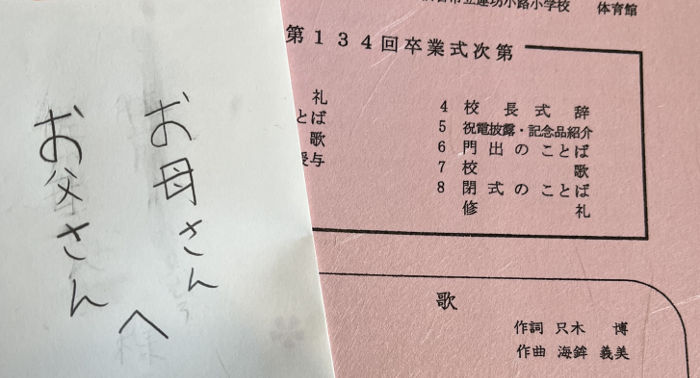 お母さん
お父さん
へ
小路小学校 体育館
第134回卒業式次第
礼
とば
歌
授与
4 校長式辞
5 祝電披露・記念品紹介
6 門出のことば
7 校歌
8 閉式のことば
修礼
歌
作詞 只木 博
作曲 海鉾 義美